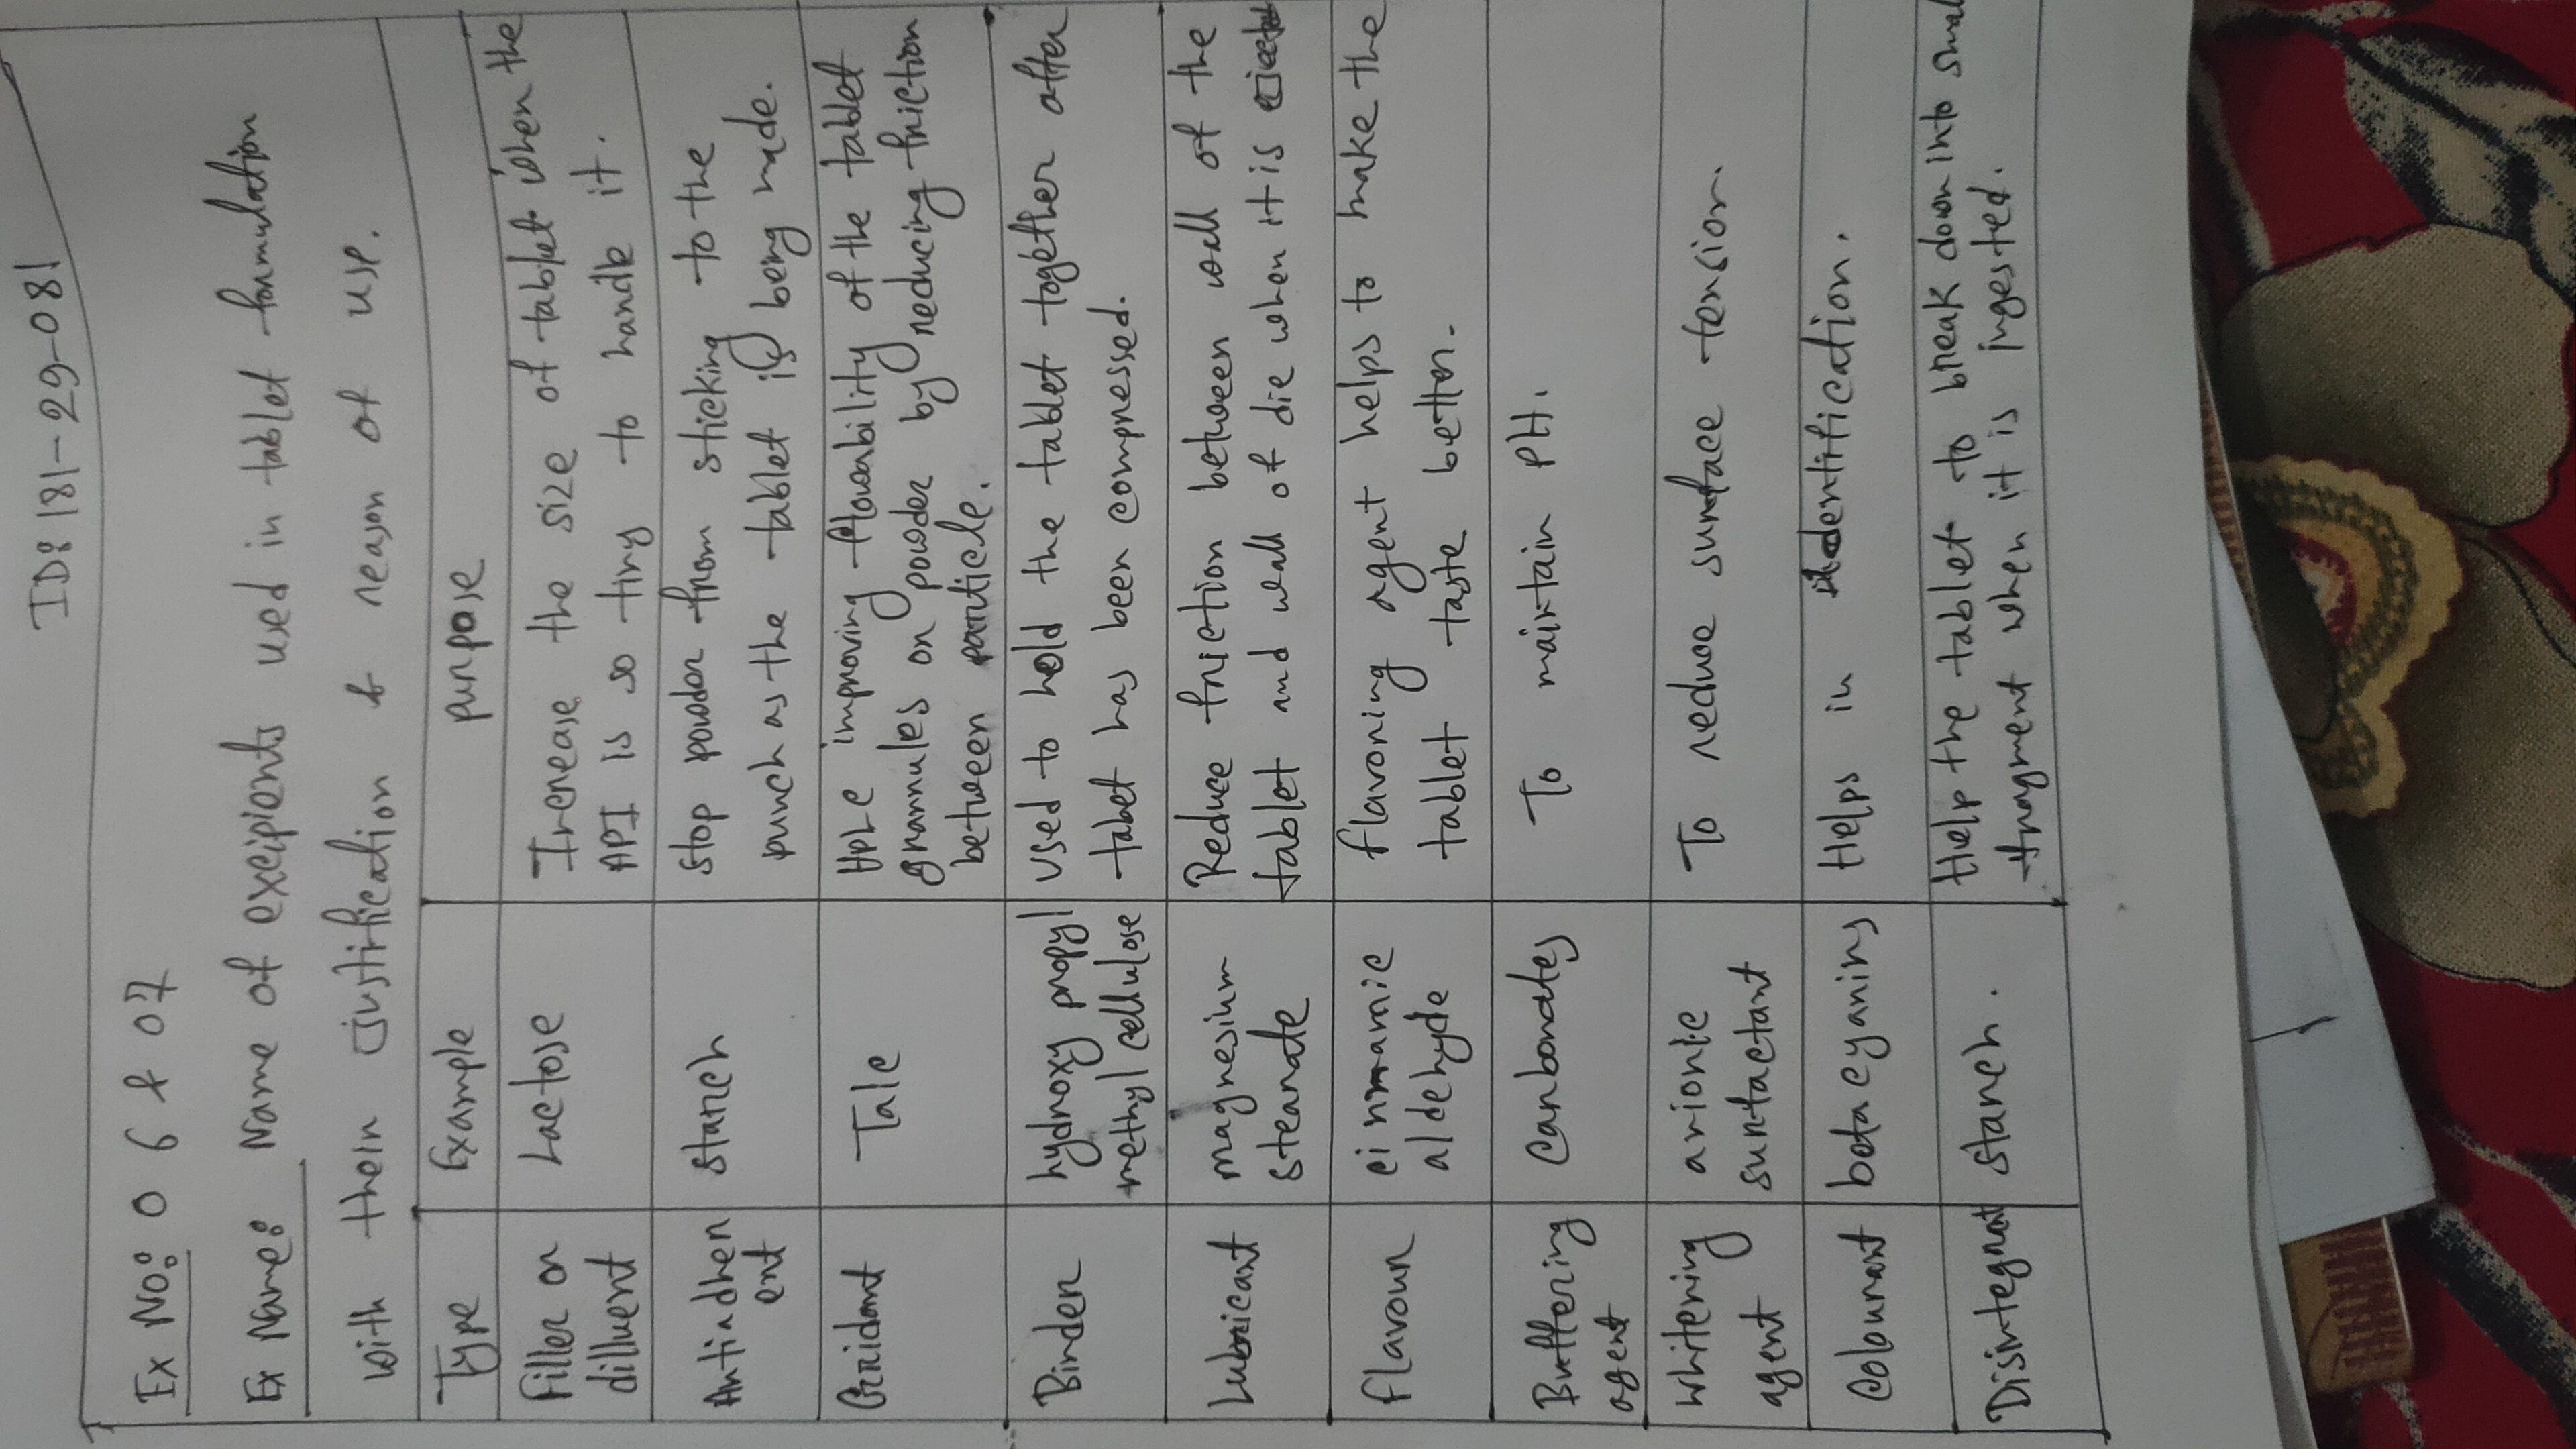 ID: 181-29-081
Ex No: 06 & 07
Ex Name: Name of excipients used in tablet formulation
with their justification & reason of use.
Type Example purpose
Filler or Lactose Increase the size of tablet when the
dilluent API is so tiny to handle it.
Antiadher starch stop powder from sticking to the
ent punch as the tablet is being made.
Glidant Talc improving flowability of the tablet
grannules or powder by reducing friction
between particle.
Binder hydroxy propyl used to hold the tablet together after
methyl cellulose tablet has been compressed.
Lubricant magnesium Reduce friction between wall of the
stearate tablet and wall of die when it is
flavour cinnamic flavoring agent helps to make the
aldehyde tablet taste better.
Buffering Carbonates To maintain PH.
agent
Whitening anionic To reduce surface tension.
agent surfactant
Colourant beta cyanins Helps in identification.
Disintegrant starch. Help the tablet to break down into smal
fragment when it is ingested.